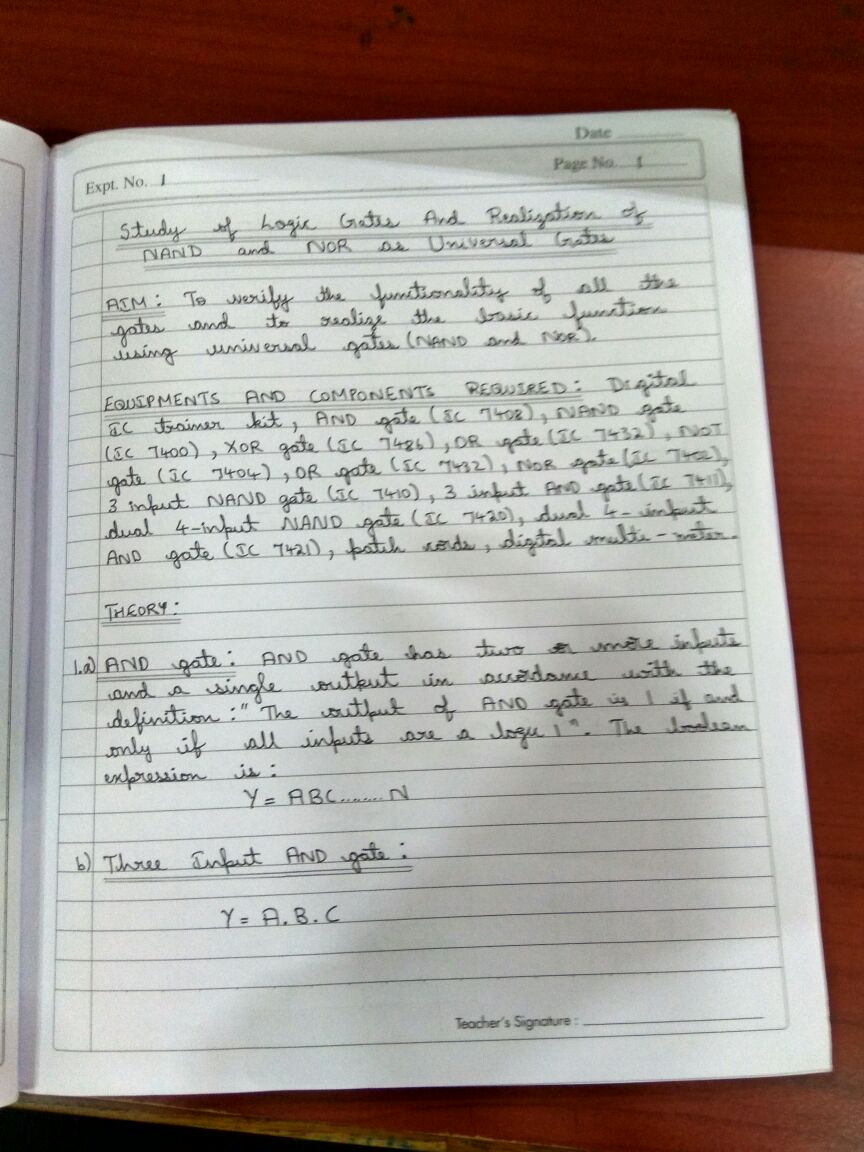 Date
Expt. No. 1
Page No. 1
Study of Logic Gates And Realization of
NAND and NOR as Universal Gates
AIM: To verify the functionality of all the
gates and to realize the basic function
using universal gates (NAND and NOR).
EQUIPMENTS AND COMPONENTS REQUIRED: Digital
IC trainer kit, AND gate (IC 7408), NAND gate
(IC 7400), XOR gate (IC 7486), OR gate (IC 7432), NOT
gate (IC 7404), OR gate (IC 7432), NOR gate (IC 7402),
3 input NAND gate (IC 7410), 3 input AND gate (IC 7411),
dual 4-input NAND gate (IC 7420), dual 4-input
AND gate (IC 7421), patch cords, digital multi-meter.
THEORY:
1.a) AND gate: AND gate has two or more inputs
and a single output in accordance with the
definition: "The output of AND gate is 1 if and
only if all inputs are a logic 1". The boolean
expression is:
Y = ABC........N
b) Three Input AND gate:
Y = A.B.C
Teacher's Signature :